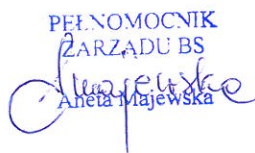 PEŁNOMOCNIK
ZARZĄDU BS
Aneta Majewska